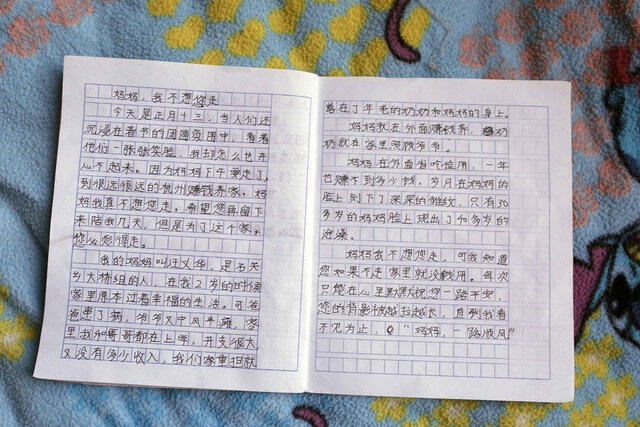 妈妈，我不想您走
今天是正月十三，当人们还
沉浸在春节的团圆氛围中，看着
他们一张张笑脸，我却怎么也开
心不起来。因为妈妈下午要走了，
到很远很远的杭州赚钱养家，妈
妈我真不想您走。希望您再留下
来陪我几天，但是为了这个家，
您必须得走。
我的妈妈叫汪义华，是石关
乡大桥组的人，在我2岁的时候
家里原本过着幸福的生活。可爸
爸患了病，爷爷又中风半瘫，家
里我和哥哥都在上学，开支很大
又没有多少收入。我们家重担就
落在了年老的奶奶和妈妈的身上。
妈妈就在外面赚钱养，奶
奶就在家里照顾爷爷。
妈妈在外面省吃俭用，一年
也赚不到多少钱，岁月在妈妈的
脸上刻下了深深的皱纹，只有30
多岁的妈妈脸上现出了40多岁的
沧桑。
妈妈我不想您走，可我知道
您如果不走家里就没钱用。每次
只能在心里默默祝您一路平安，
您的背影被越拉越长，直到我看
不见为止，。“妈妈，一路顺风”